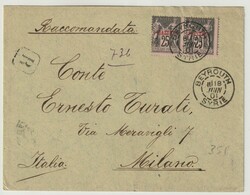 Raccomandata
R
731
Conte
Ernesto Turati
Via Meravigli 7
Milano
Italia
BEYROUTH
18
JUIN
01
SYRIE